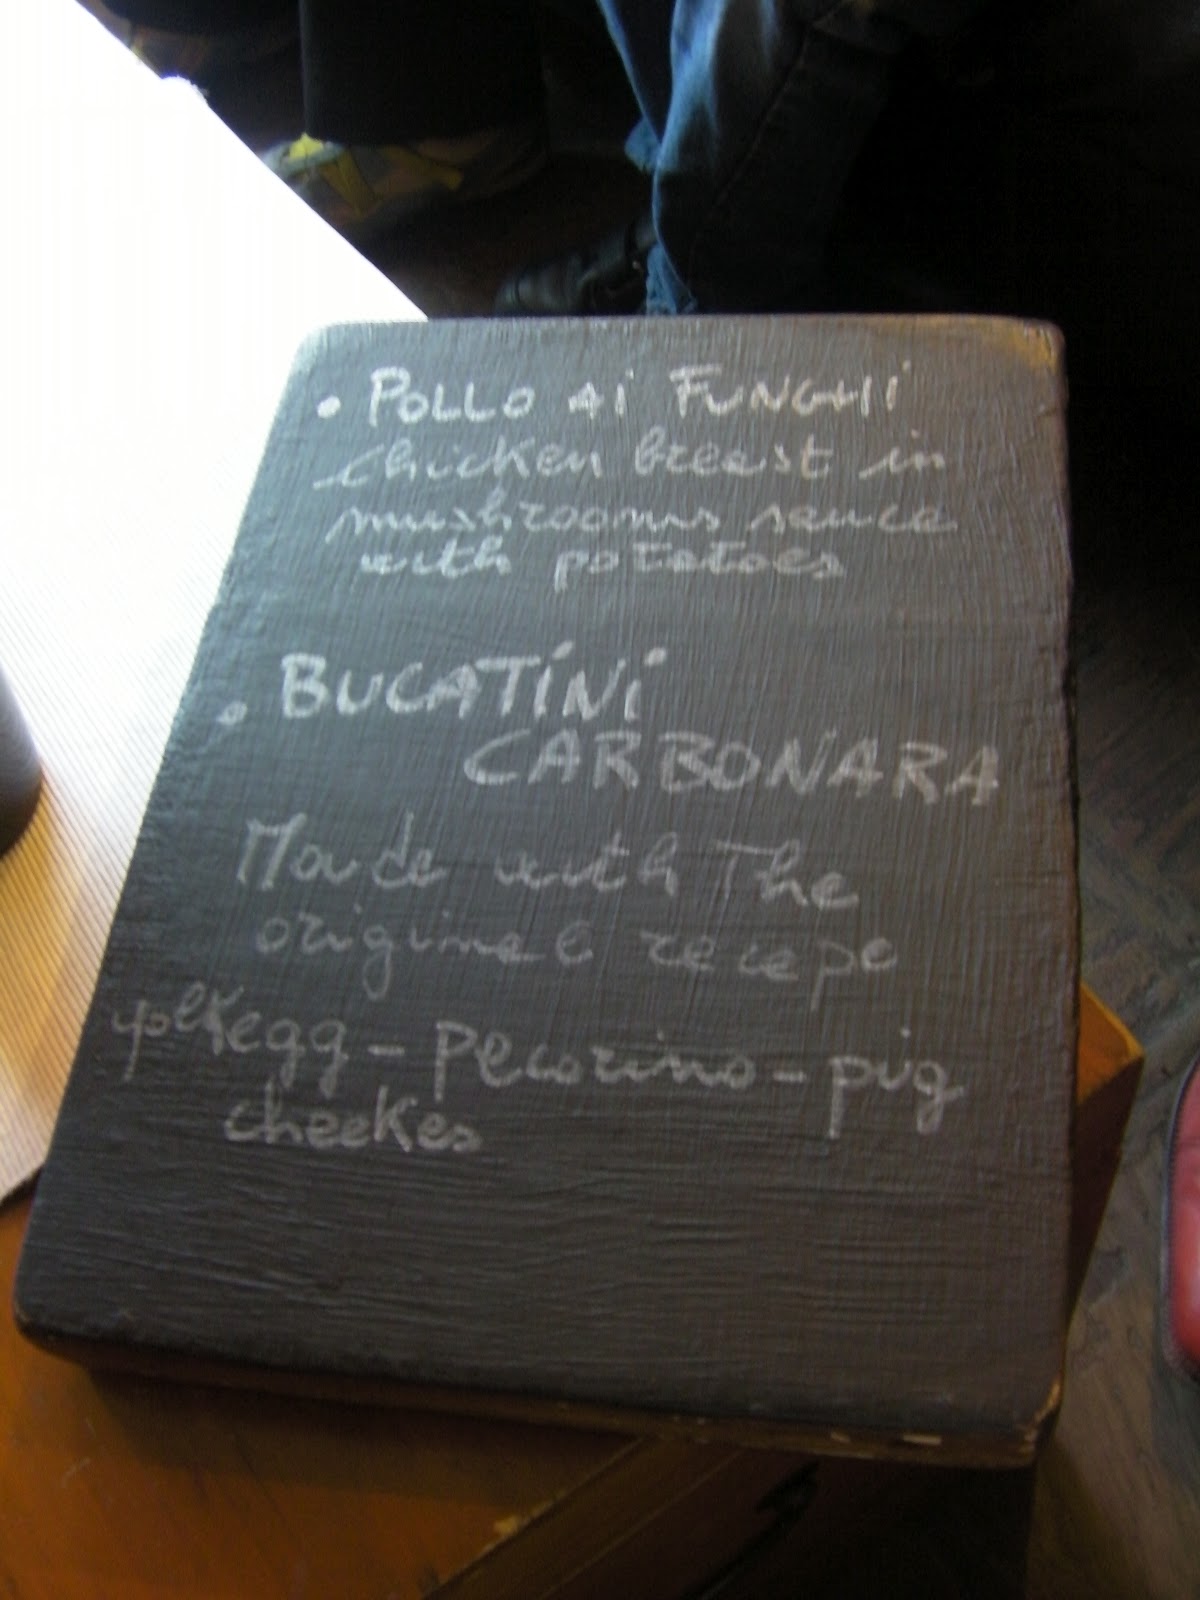 • POLLO Ai FUNGHI
chicken breast in
mushrooms sauce
with potatoes
• BUCATiNi
CARBONARA
Made with The
original recepe
yolk egg - Pecorino - pig
cheekes